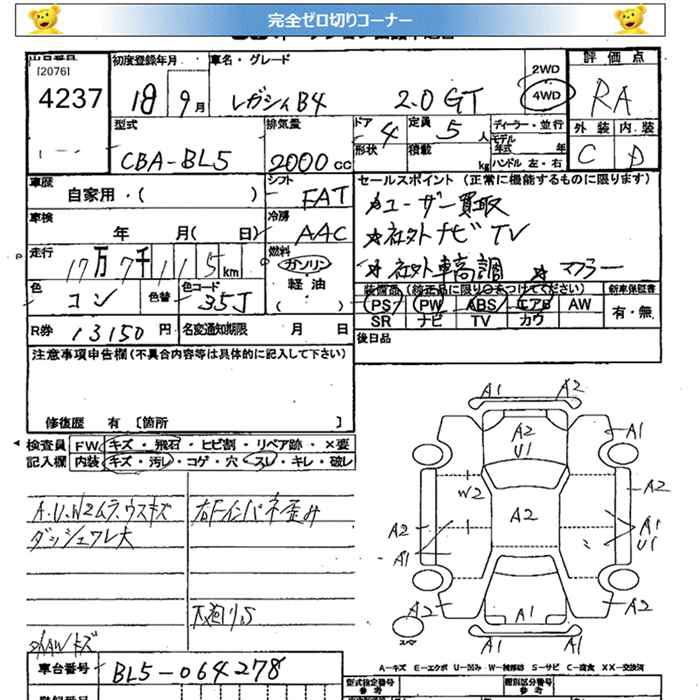 完全ゼロ切りコーナー
[2076]
4237
初度登録年月
18 9月
車名・グレード
レガシィB4 2.0GT
2WD
4WD
評価点
RA
外装 内装
C D
型式
CBA-BL5
排気量
2000cc
ドア
4
形状
定員
5人
積載
kg
ディーラー・並行
モデル年式 年
ハンドル 左・右
車歴
自家用・( )
シフト
FAT
車検
年 月( 日)
冷房
AAC
走行
17万7千115km
燃料
ガソリン
軽油
( )
色
コン
色替
色コード
35J
R券 13150円
名変通知期限 月 日
セールスポイント(正常に機能するものに限ります)
☆ユーザー買取
☆社外ナビTV
☆社外車高調 ☆マフラー
装備品(純正品に限り○をつけてください)
PS PW ABS エアB AW
SR ナビ TV カワ
新車保証書
有・無
後日品
注意事項申告欄(不具合内容等は具体的に記入して下さい)
修復歴 有[箇所 ]
検査員
記入欄
FW キズ・飛石・ヒビ割・リペア跡・×要
内装 キズ・汚レ・コゲ・穴・スレ・キレ・破レ
A、U、W2ムラ、ウスキズ
ダッシュワレ大
右Fインパネ歪み
外AWキズ
車台番号 BL5-064278
A1 A2
A2
U1
A1
W2
A2
A2
A2
A1
A1
U1
A2
A1
A2
A1 A1
スペア
A-キズ E-エクボ U-凹み W-補修跡 S-サビ C-腐食 XX-交換済
型式指定番号
参考
類別区分番号
参考